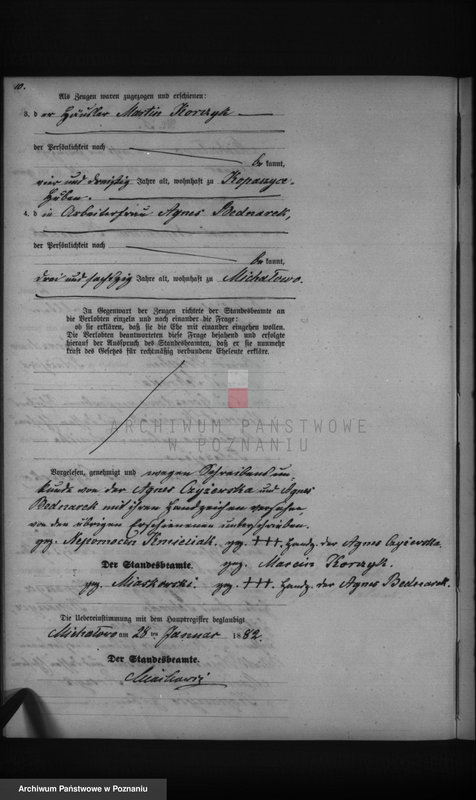 10.
Als Zeugen waren zugezogen und erschienen:
3. der Häusler Martin Korczyk
der Persönlichkeit nach
be kannt,
vier und dreißig Jahre alt, wohnhaft zu Kopaszyce-
Huben.
4. die Arbeiterfrau Agnes Bednarek,
der Persönlichkeit nach
be kannt,
drei und sechszig Jahre alt, wohnhaft zu Michałowo.
In Gegenwart der Zeugen richtete der Standesbeamte an
die Verlobten einzeln und nach einander die Frage:
ob sie erklären, daß sie die Ehe mit einander eingehen wollen.
Die Verlobten beantworteten diese Frage bejahend und erfolgte
hierauf der Ausspruch des Standesbeamten, daß er sie nunmehr
kraft des Gesetzes für rechtmäßig verbundene Eheleute erkläre.
ARCHIWUM PAŃSTWOWE
W POZNANIU
Vorgelesen, genehmigt und wegen Schreibensun-
kunde von der Agnes Czyżewska und Agnes
Bednarek mit ihren Handzeichen versehen,
von den übrigen Erschienenen unterschrieben.
gez. Nepomocin Kmieciak. gez. +++ Handz. der Agnes Czyżewska.
Der Standesbeamte. gez. Marcin Korczyk.
gez. Miaskowski. gez. +++ Handz. der Agnes Bednarek.
Die Uebereinstimmung mit dem Hauptregister beglaubigt
Michałowo am 28 ten Januar 1882.
Der Standesbeamte.
Archiwum Państwowe w Poznaniu